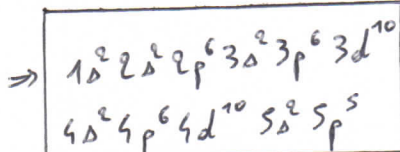 ⇒ 1s² 2s² 2p⁶ 3s² 3p⁶ 3d¹⁰
4s² 4p⁶ 4d¹⁰ 5s² 5p⁵